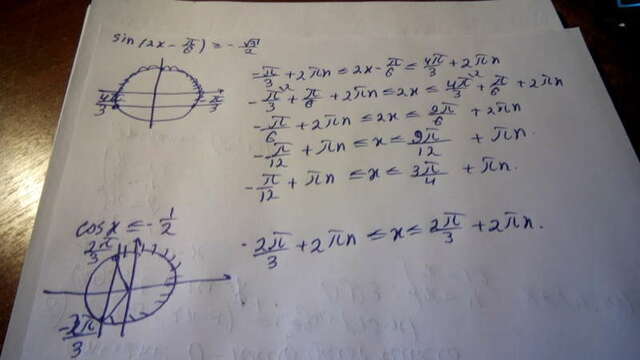 sin(2x - π/6) ≥ -√3/2
4π/3 -π/3
-π/3 + 2πn ≤ 2x - π/6 ≤ 4π/3 + 2πn
-π/3^2 + π/6 + 2πn ≤ 2x ≤ 4π/3^2 + π/6 + 2πn
-π/6 + 2πn ≤ 2x ≤ 9π/6 + 2πn
-π/12 + πn ≤ x ≤ 9π/12 + πn.
-π/12 + πn ≤ x ≤ 3π/4 + πn.
cos x ≥ -1/2
2π/3
-2π/3
-2π/3 + 2πn ≤ x ≤ 2π/3 + 2πn.